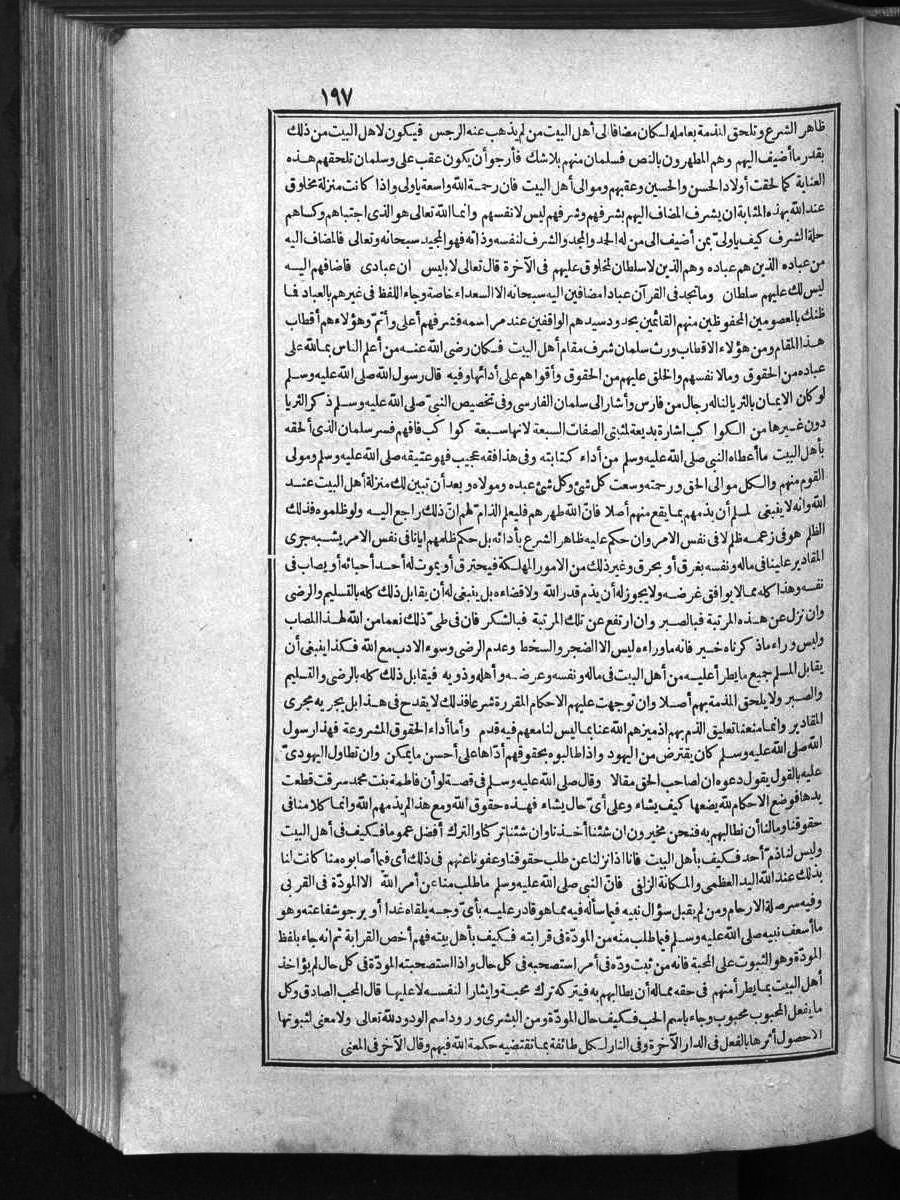 ١٩٧
ظاهر الشرع وتلحق المذمة بعامله لكان مضافا الى أهل البيت من لم يذهب عنه الرجس فيكون لاهل البيت من ذلك
بقدر ما أضيف اليهم وهم المطهرون بالنص فسلمان منهم بلا شك فأرجو أن يكون عقب على وسلمان تلحقهم هذه
العناية كما لحقت أولاد الحسن والحسين وعقبهم وموالى أهل البيت فان رحمة الله واسعة ياولى واذا كانت منزلة مخلوق
عند الله بهذه المثابة ان يشرف المضاف اليهم بشرفهم وشرفهم ليس لانفسهم وانما الله تعالى هو الذى اجتباهم وكساهم
حلة الشرف كيف ياولىّ بمن أضيف الى من له الحمد والمجد والشرف لنفسه وذاته فهو المجيد سبحانه وتعالى فالمضاف اليه
من عباده الذين هم عباده وهم الذين لا سلطان لمخلوق عليهم فى الآخرة قال تعالى لابليس ان عبادى فاضافهم اليه
ليس لك عليهم سلطان وما تجد فى القرآن عبادا مضافين اليه سبحانه الا السعداء خاصة وجاء اللفظ فى غيرهم بالعباد فما
ظنك بالمعصومين المحفوظين منهم القائمين بحدود سيدهم الواقفين عند مراسمه فشرفهم أعلى وأتمّ وهؤلاء هم أقطاب
هذا المقام ومن هؤلاء الاقطاب ورث سلمان شرف مقام أهل البيت فكان رضى الله عنه من أعلم الناس بما لله على
عباده من الحقوق وما لانفسهم والخلق عليهم من الحقوق وأقواهم على أدائها وفيه قال رسول الله صلى الله عليه وسلم
لو كان الايمان بالثريا لناله رجال من فارس وأشار الى سلمان الفارسى وفى تخصيص النبىّ صلى الله عليه وسلم ذكر الثريا
دون غيرها من الكواكب اشارة بديعة لمثبتى الصفات السبعة لانها سبعة كواكب فافهم فسر سلمان الذى ألحقه
بأهل البيت ما أعطاه النبى صلى الله عليه وسلم من أداء كتابته وفى هذا فقه عجيب فهو عتيقه صلى الله عليه وسلم ومولى
القوم منهم والكل موالى الحق ورحمته وسعت كل شئ وكل شئ عبده ومولاه وبعد أن تبين لك منزلة أهل البيت عند
الله وانه لا ينبغى لمسلم أن يذمهم بما يقع منهم أصلا فانّ الله طهرهم فليعلم الذامّ لهم انّ ذلك راجع اليه ولو ظلموه فذلك
الظلم هو فى زعمه ظلم لا فى نفس الامر وان حكم عليه ظاهر الشرع بأدائه بل حكم ظلمهم ايانا فى نفس الامر يشبه جرى
المقادير علينا فى ماله ونفسه بغرق أو بحرق وغير ذلك من الامور المهلكة فيحترق أو يموت له أحد أحبائه أو يصاب فى
نفسه وهذا كله مما لا يوافق غرضه ولا يجوز له أن يذم قدر الله ولا قضاءه بل ينبغى له أن يقابل ذلك كله بالتسليم والرضى
وان نزل عن هذه المرتبة فبالصبر وان ارتفع عن تلك المرتبة فبالشكر فان فى طىّ ذلك نعما من الله لهذا المصاب
وليس وراء ماذكرناه خير فانه ماوراءه ليس الا الضجر والسخط وعدم الرضى وسوء الادب مع الله فكذا ينبغى أن
يقابل المسلم جميع ما يطرأ عليه من أهل البيت فى ماله ونفسه وعرضه وأهله وذويه فيقابل ذلك كله بالرضى والتسليم
والصبر ولا يلحق المذمة بهم أصلا وان توجهت عليهم الاحكام المقررة شرعا فذلك لا يقدح فى هذا بل يجريه مجرى
المقادير وانما منعنا تعليق الذم بهم اذ ميزهم الله عنا بما ليس لنا معهم فيه قدم وأما أداء الحقوق المشروعة فهذا رسول
الله صلى الله عليه وسلم كان يقترض من اليهود واذا طالبوه بحقوقهم أدّاها على أحسن ما يمكن وان تطاول اليهودىّ
عليه بالقول يقول دعوه ان لصاحب الحق مقالا وقال صلى الله عليه وسلم فى قصة لو أن فاطمة بنت محمد سرقت قطعت
يدها فوضع الاحكام لله يضعها كيف يشاء وعلى أىّ حال يشاء فهذه حقوق الله ومع هذا لم يذمهم الله وانما كلامنا فى
حقوقنا وما لنا أن نطالبهم به فنحن مخيرون ان شئنا أخذنا وان شئنا تركنا والترك أفضل عموما فكيف فى أهل البيت
وليس لنا ذمّ أحد فكيف بأهل البيت فانا اذا نزلنا عن طلب حقوقنا وعفونا عنهم فى ذلك أى فيما أصابوه منا كانت لنا
بذلك عند الله اليد العظمى والمكانة الزلفى فانّ النبى صلى الله عليه وسلم ماطلب منا عن أمر الله الا المودّة فى القربى
وفيه سر صلة الارحام ومن لم يقبل سؤال نبيه فيما سأله فيه مما هو قادر عليه بأىّ وجه يلقاه غدا أو يرجو شفاعته وهو
ما أسعف نبيه صلى الله عليه وسلم فيما طلب منه من المودّة فى قرابته فكيف بأهل بيته فهم أخص القرابة ثم انه جاء بلفظ
المودّة وهو الثبوت على المحبة فانه من ثبت ودّه فى أمر استصحبه فى كل حال واذا استصحبته المودّة فى كل حال لم يؤاخذ
أهل البيت بما يطرأ منهم فى حقه مما له أن يطالبهم به فيتركه ترك محبة وايثارا لنفسه لا عليها قال المحب الصادق وكل
ما يفعل المحبوب محبوب وجاء باسم الحب فكيف حال المودّة ومن البشرى ورود اسم الودود لله تعالى ولا معنى لثبوتها
الا حصول أثرها بالفعل فى الدار الآخرة وفى النار لكل طائفة بما تقتضيه حكمة الله فيهم وقال الآخر فى المعنى